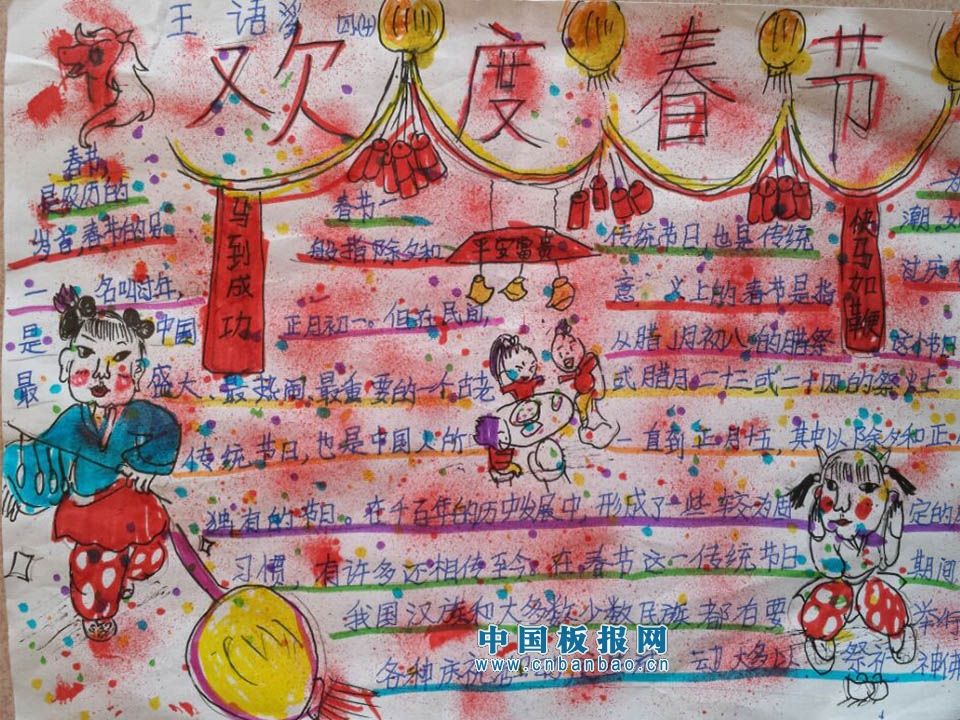 王语溪 四(1)
欢度春节
春节,
是农历的
岁首,春节的另
一 名叫过年,
是 中国
最 盛大、最热闹、最重要的一个古老
传统节日,也是中国人的
独有的节日。在千百年的历中发展中,形成了一些较为固 定的
习惯,有许多还相传至今。在春节这一传统节日 期间
我国汉族和大多数少数民族都有要 举行
各种庆祝 动 大多以 祭祀 神佛
马到成功
春节一
般指除夕和
正月初一。但在民间,
平安富贵
传统节日,也是传统
意 义上的春节是指
从腊月初八的腊祭
或腊月二十三或二十四的祭灶
一直到正月十五,其中以除夕和正月
快马加鞭
潮,
过庆
这个节日
中国板报网
www.cnbanbao.cn